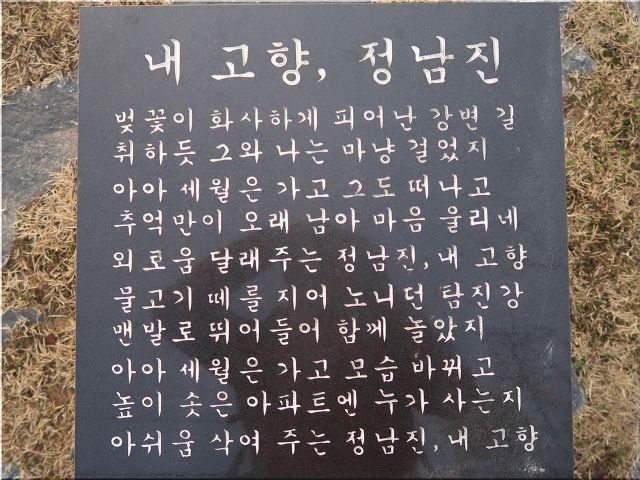 내 고향, 정남진
벚꽃이 화사하게 피어난 강변 길
취하듯 그와 나는 마냥 걸었지
아아 세월은 가고 그도 떠나고
추억만이 오래 남아 마음 울리네
외로움 달래 주는 정남진, 내 고향
물고기 떼를 지어 노니던 탐진강
맨발로 뛰어들어 함께 놀았지
아아 세월은 가고 모습 바뀌고
높이 솟은 아파트엔 누가 사는지
아쉬움 삭여 주는 정남진, 내 고향